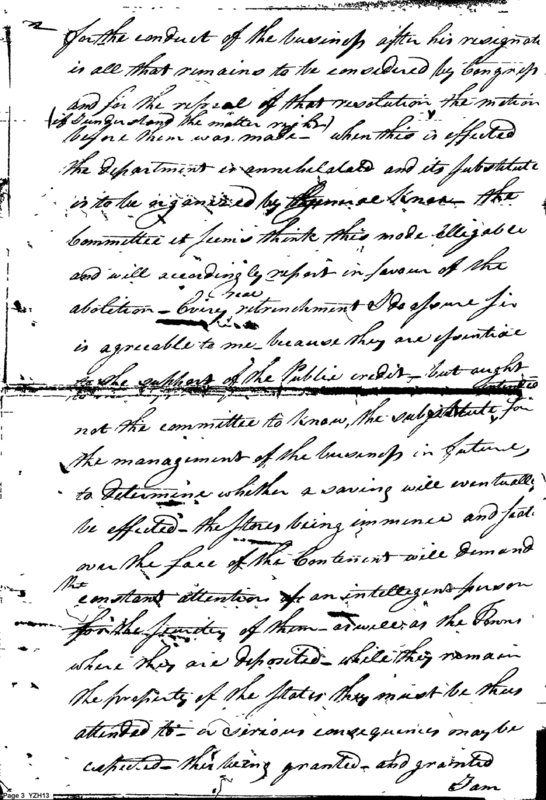 for the conduct of the business after his resignat
is all that remains to be considered by Congress
and for the repeal of that resolution the motion
(if I understand the matter right)
before them was made — when this is effected
the department is annihalated and its substitute
is to be organized by the
Committee it seems think this mode Elligable
and will accordingly report in favour of the
real
abolition — Every retrenchment I do assure sir
is agreeable to me — because they are essential
to the support of the Public credit — but ought
not the committee to know, the substitute for
the management of the business in future,
to determine whether a saving will eventually
be effected — the stores being immence and scat
over the face of the Continent will demand
the
constant attention of an intelligent person
for the security of them — as well as the Towns
where they are deposited — while they remain
the property of the States they must be thus
attended to — or serious consequences may be
expected — this being granted — and granted
I am
Page 3 YZH13